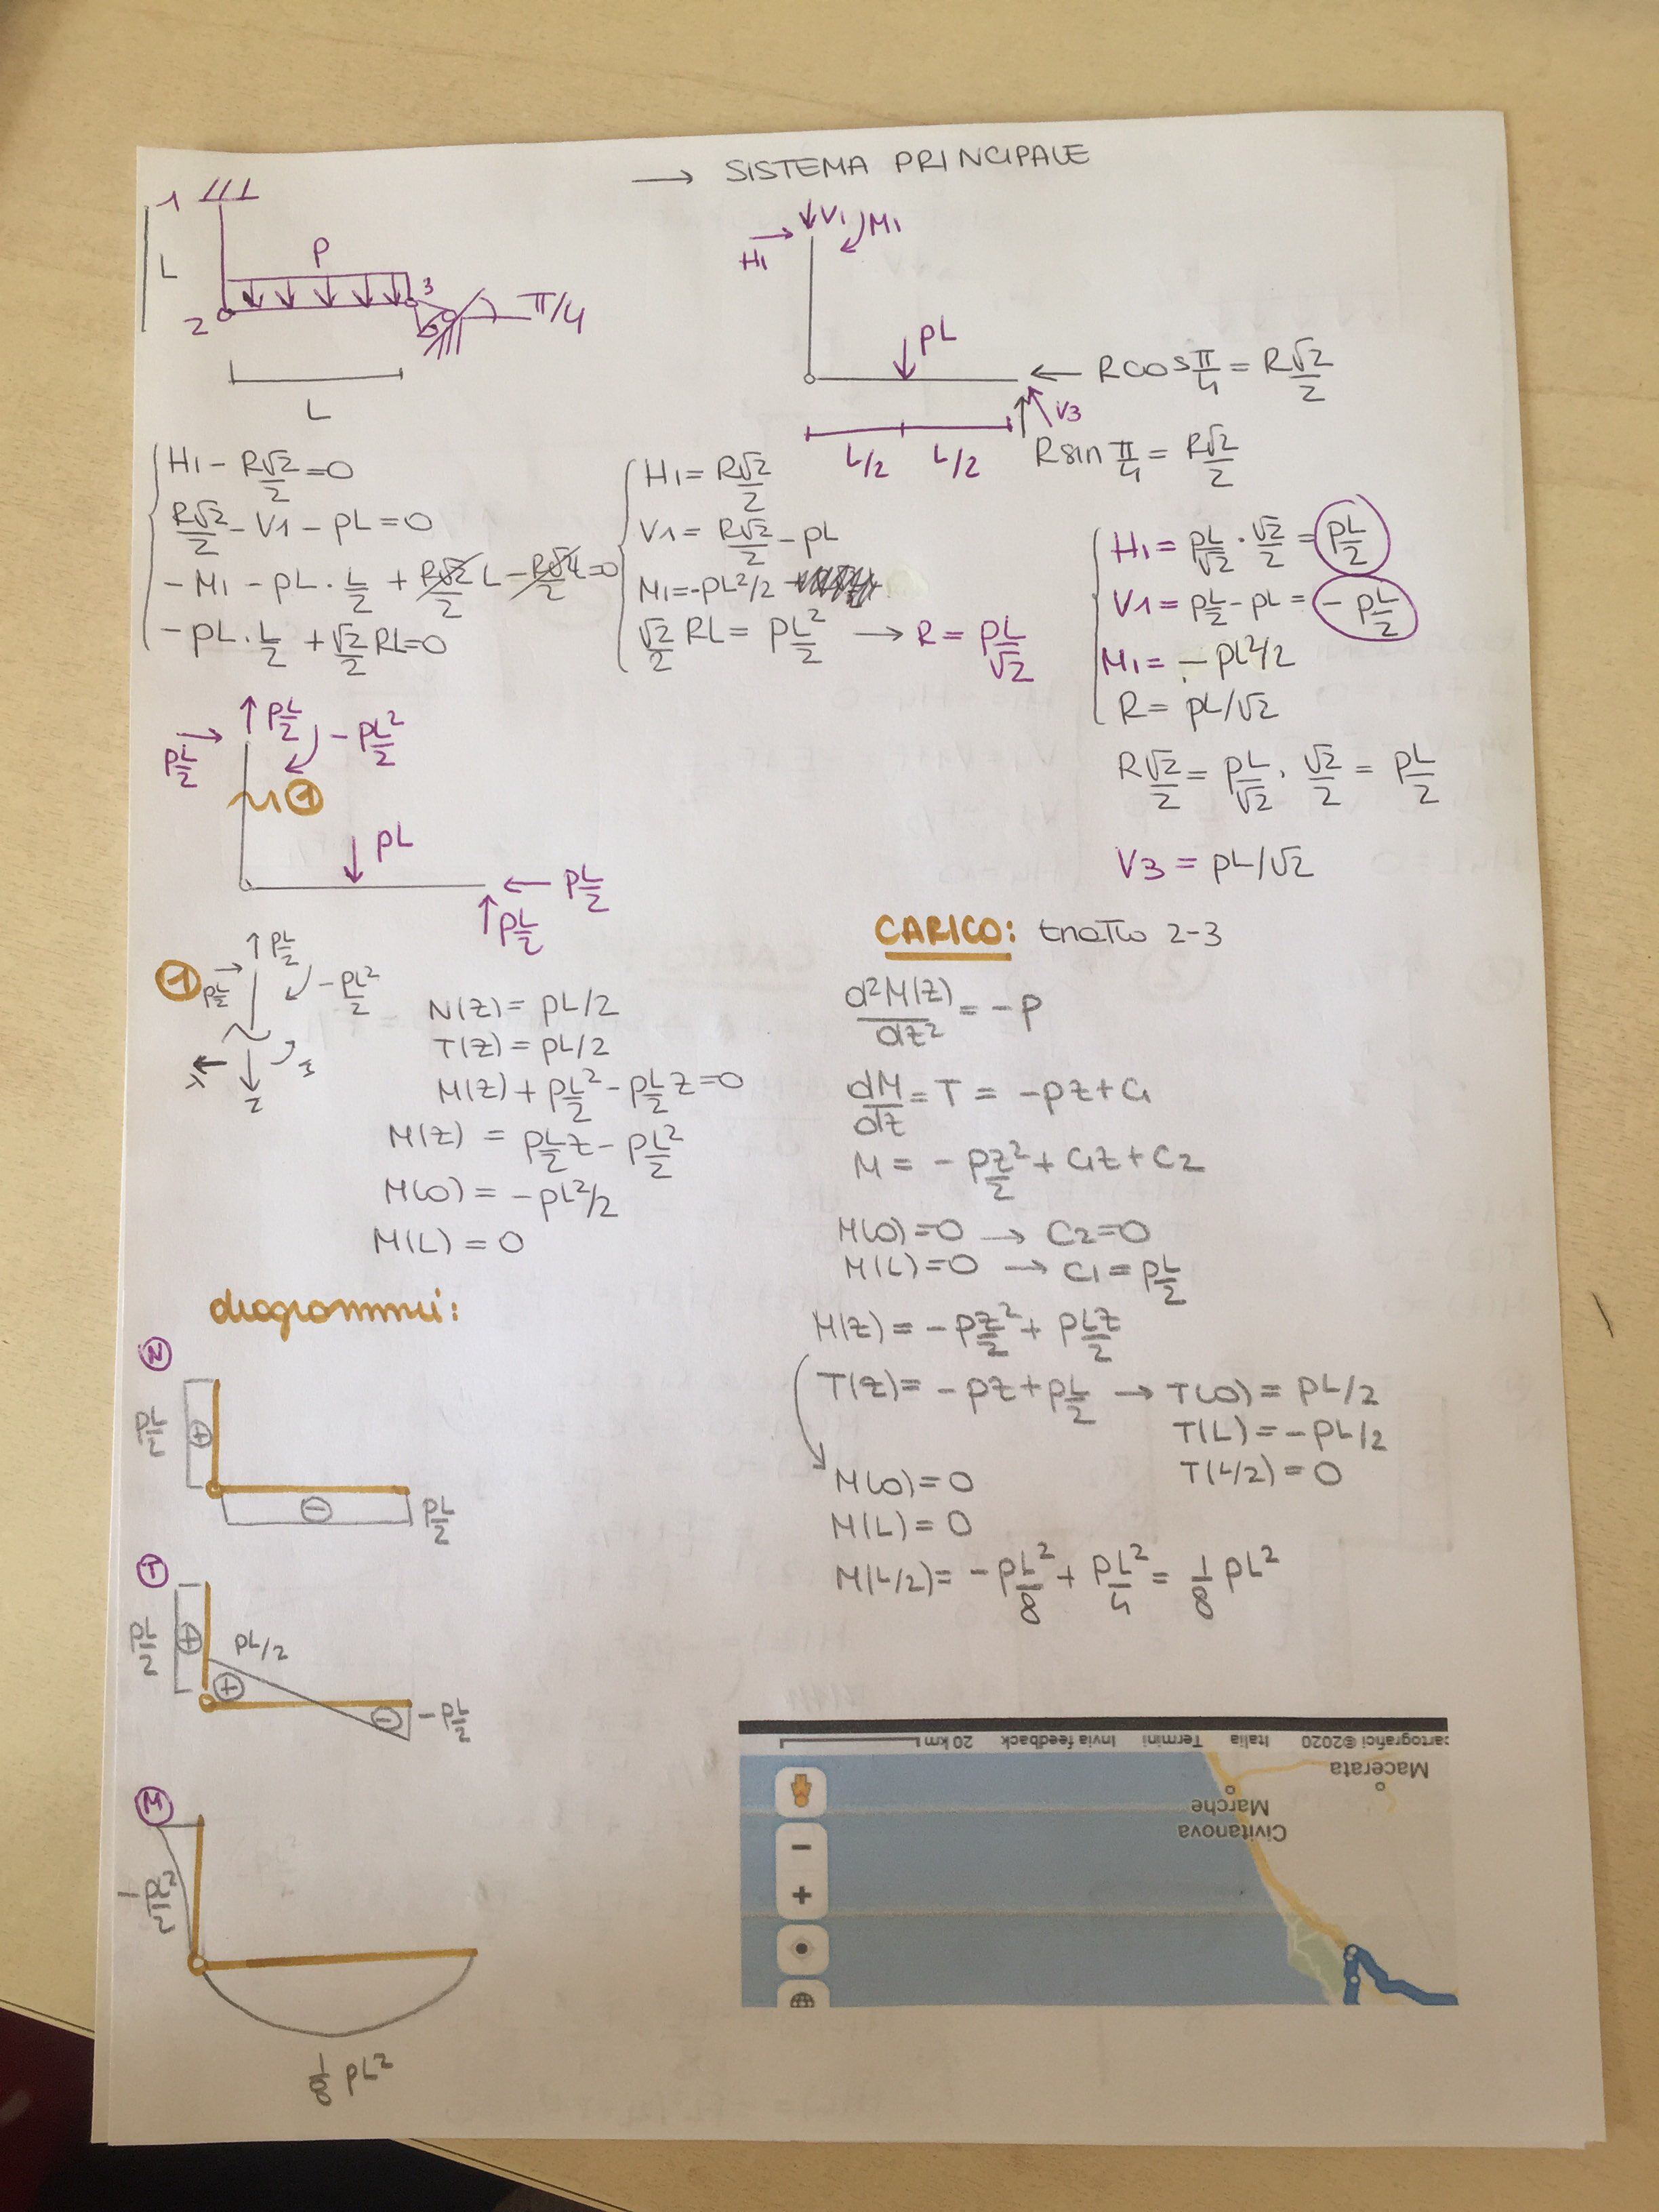 → SISTEMA PRINCIPALE
1
L
P
2
3
π/4
L
V1
M1
H1
PL
← R cos π/4 = R√2/2
V3
L/2 L/2
R sin π/4 = R√2/2
H1 - R√2/2 = 0
R√2/2 - V1 - PL = 0
- M1 - PL · L/2 + R√2/2 L - R√2/2 L = 0
- PL · L/2 + √2/2 RL = 0
H1 = R√2/2
V1 = R√2/2 - PL
M1 = - PL²/2
√2/2 RL = PL²/2 → R = PL/√2
H1 = PL/√2 · √2/2 = PL/2
V1 = PL/2 - PL = - PL/2
M1 = - PL²/2
R = PL/√2
R√2/2 = PL/√2 · √2/2 = PL/2
V3 = PL/√2
PL/2
PL/2
- PL²/2
1
PL
← PL/2
PL/2
1
PL/2
PL/2
- PL²/2
z
N(z) = PL/2
T(z) = PL/2
M(z) + PL²/2 - PL/2 z = 0
M(z) = PL/2 z - PL²/2
M(0) = - PL²/2
M(L) = 0
CARICO: tratto 2-3
d²M(z)/dz² = - P
dM/dz = T = - Pz + C1
M = - Pz²/2 + C1z + C2
M(0) = 0 → C2 = 0
M(L) = 0 → C1 = PL/2
M(z) = - Pz²/2 + PLz/2
T(z) = - Pz + PL/2 → T(0) = PL/2
T(L) = - PL/2
T(L/2) = 0
M(0) = 0
M(L) = 0
M(L/2) = - PL²/8 + PL²/4 = 1/8 PL²
diagrammi:
N
PL/2
+
-
PL/2
T
PL/2
+
PL/2
+
-
- PL/2
M
1/2 PL²
1/8 PL²
cartografici ©2020 Italia Termini Invia feedback 20 km
Macerata
Civitanova
Marche